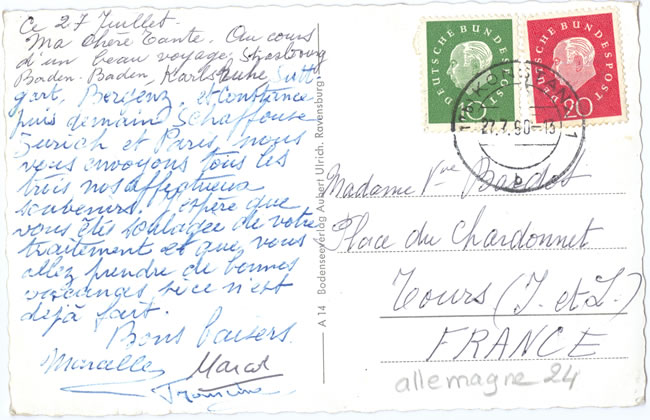 Ce 27 Juillet.
Ma chère Tante. Au cours
d'un beau voyage, Strasbourg
Baden-Baden, Karlsruhe Sutt
gart, Bergenz, et Constance
puis demain Schaffouse
Zurich et Paris, nous
vous envoyons tous les
trois nos affectueux
souvenirs. J'espère que
vous êtes soulagée de votre
traitement et que vous
allez prendre de bonnes
vacances si ce n'est
déjà fait.
Bons baisers.
Marcelle Marcel
Francine
A 14 Bodenseeverlag Aubert Ulrich, Ravensburg
DEUTSCHE BUNDESPOST
10
DEUTSCHE BUNDESPOST
20
27.7.60-13
b
Madame Vve Bardet
Place du Chardonnet
Tours (I. et L.)
FRANCE
allemagne 24